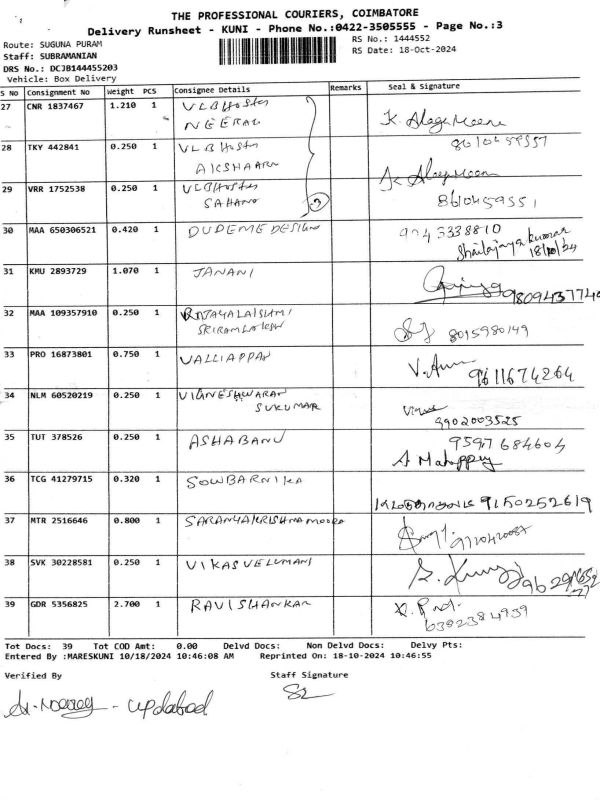 THE PROFESSIONAL COURIERS, COIMBATORE
Delivery Runsheet - KUNI - Phone No.:0422-3505555 - Page No.:3
Route: SUGUNA PURAM
RS No.: 1444552
Staff: SUBRAMANIAN
RS Date: 18-Oct-2024
DRS No.: DCJB144455203
Vehicle: Box Delivery
S No Consignment No Weight PCS Consignee Details Remarks Seal & Signature
27 CNR 1837467 1.210 1 VLB Hostes
NEERAJ K. Alagu Meena
8610459551
28 TKY 442841 0.250 1 VLB Hostes
AKSHAARA K Alagu Meena
29 VRR 1752538 0.250 1 VLB Hostes
SAHANA 3 8610459551
30 MAA 650306521 0.420 1 DUDEME DESIGNS 9943338810
Shailajayakumar
18/10/24
31 KMU 2893729 1.070 1 JANANI 9809437740
32 MAA 109357910 0.250 1 RAJAYALAKSHMI
SRIRAM 8015980149
33 PRO 16873801 0.750 1 VALLIAPPAN V. Arun
9611674264
34 NLM 60520219 0.250 1 VIGNESHWARAN
SUKUMAR 9902003525
35 TUT 378526 0.250 1 ASHABANU 9597684604
36 TCG 41279715 0.320 1 SOWBARNIKA 9150252619
37 MTR 2516646 0.800 1 SARANYAKRISHNAMOORO
38 SVK 30228581 0.250 1 VIKASVELUMANI
39 GDR 5356825 2.700 1 RAVISHANKAR
6392384939
Tot Docs: 39 Tot COD Amt: 0.00 Delvd Docs: Non Delvd Docs: Delvy Pts:
Entered By :MARESKUNI 10/18/2024 10:46:08 AM Reprinted On: 18-10-2024 10:46:55
Verified By Staff Signature
- updated